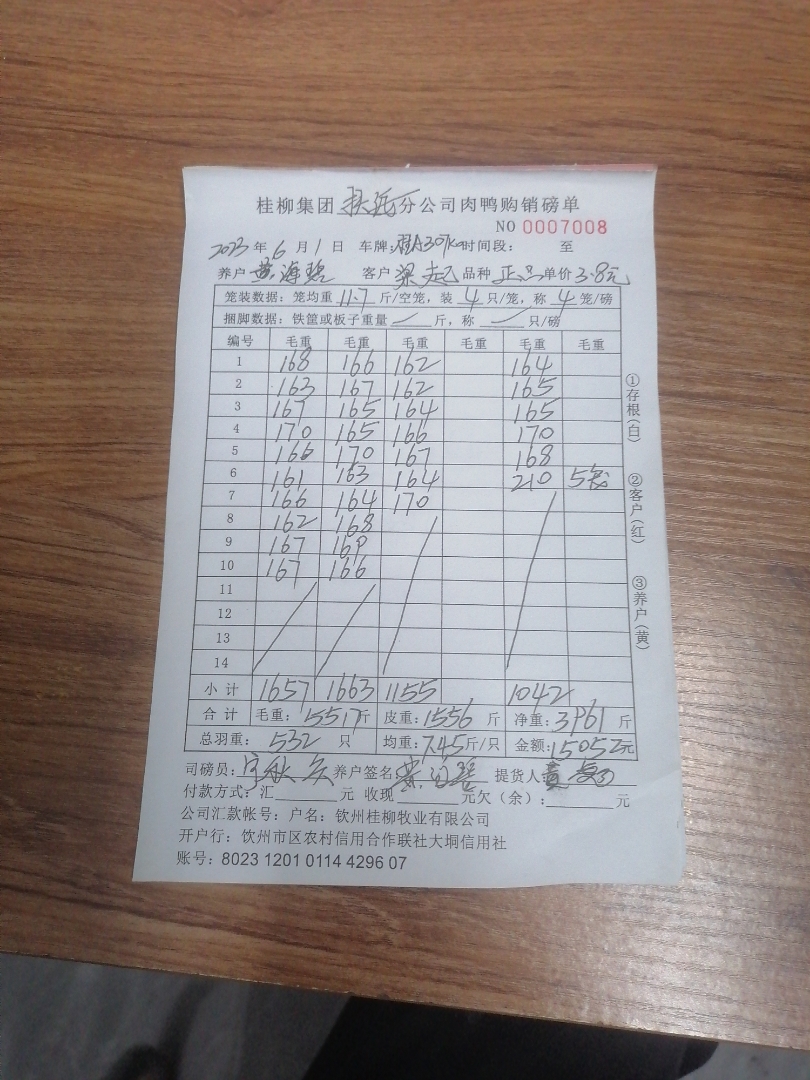 桂柳集团 扶绥 分公司肉鸭购销磅单
NO 0007008
2023 年 6 月 1 日 车牌: 时间段: 至
养户 黄海 客户 梁 品种 正品 单价 3.8元
笼装数据: 笼均重 11.7 斤/空笼, 装 4 只/笼, 称 4 笼/磅
捆脚数据: 铁筐或板子重量 斤, 称 只/磅
编号 毛重 毛重 毛重 毛重 毛重 毛重
1 168 166 162 164
2 163 167 162 165
3 167 165 164 165
4 170 165 166 170
5 166 170 167 168
6 161 163 164 210 5笼
7 166 164 170
8 162 168
9 167 169
10 167 166
11
12
13
14
小计 1657 1663 1155 1042
合计 毛重: 5517 斤 皮重: 1556 斤 净重: 3961 斤
总羽重: 532 只 均重: 7.45 斤/只 金额: 15052元
司磅员: 养户签名: 提货人
付款方式: 汇 元 收现 元欠(余): 元
公司汇款帐号: 户名: 钦州桂柳牧业有限公司
开户行: 钦州市区农村信用合作联社大垌信用社
账号: 8023 1201 0114 4296 07
①存根(白)
②客户(红)
③养户(黄)